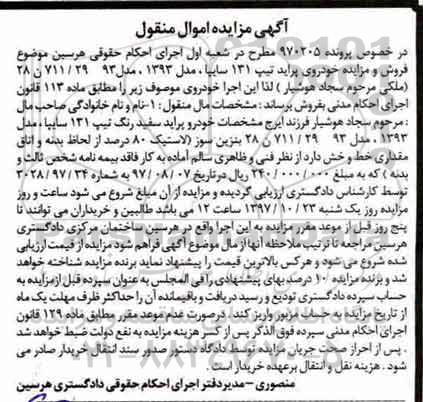 آگهی مزایده اموال منقول
در خصوص پرونده ۹۷۰۲۰۵ مطرح در شعبه اول اجرای احکام حقوقی هرسین موضوع
فروش و مزایده خودروی پراید تیپ ۱۳۱ سایپا ، مدل ۱۳۹۳ ، مدل ۹۳ ۲۹ / ۷۱۱ ن ۲۸
(ملکی مرحوم سجاد هوشیار ) لذا این اجرا خودروی موصوف زیر را مطابق ماده ۱۱۳ قانون
اجرای احکام مدنی بفروش پرساند : مشخصات مال منقول : ۱-نام و نام خانوادگی صاحب مال
: مرحوم سجاد هوشیار فرزند ایرج مشخصات خودرو پراید سفید رنگ تیپ ۱۳۱ سایپا ، مدل
۱۳۹۳ ، مدل ۹۳ ۲۹ / ۷۱۱ ن ۲۸ بنزین سوز (لاستیک ۸۰ درصد از لحاظ بدنه و اتاق
مقداری خط و خش دارد از نظر فنی و ظاهری سالم آماده به کار فاقد بیمه نامه شخص ثالث و
بدنه ) که به مبلغ ۲۴۰/۰۰۰/۰۰۰ ریال درتاریخ ۹۷/۰۸/۰۷ به شماره ۳۰۲۸/۹۷/۳۴
توسط کارشناس دادگستری ارزیابی گردیده و مزایده از آن مبلغ شروع می شود ساعت و روز
مزایده روز یک شنبه ۲۳ / ۱۰ / ۱۳۹۷ ساعت ۱۲ می باشد طالبین و خریداران می توانند تا
پنج روز قبل از موعد مقرر مزایده به این اجرا واقع در هرسین ساختمان مرکزی دادگستری
هرسین مراجعه تا ترتیب ملاحظه آنها از مال موضوع آگهی فراهم شود مزایده از قیمت ارزیابی
شده شروع می شود و هرکس بالاترین قیمت را پیشنهاد نماید برنده مزایده شناخته خواهد
شد و برنده مزایده ۱۰ درصد بهای پیشنهادی را فی المجلس به عنوان سپرده قبل از مزایده به
حساب سپرده دادگستری تودیع و رسید دریافت و باقیمانده آن را حداکثر ظرف مهلت یک ماه
از تاریخ مزایده به حساب مزبور واریز کند . درصورت عدم موعد مقرر مطابق ماده ۱۲۹ قانون
اجرای احکام مدنی سپرده فوق الذکر پس از کسر هزینه مزایده به نفع دولت ضبط خواهد شد
. پس از احراز صحت جریان مزایده توسط دادگاه دستور صدور سند انتقال خریدار صادر می
شود . هزینه نقل و انتقال برعهده خریدار است .
منصوری – مدیر دفتر اجرای احکام حقوقی دادگستری هرسین